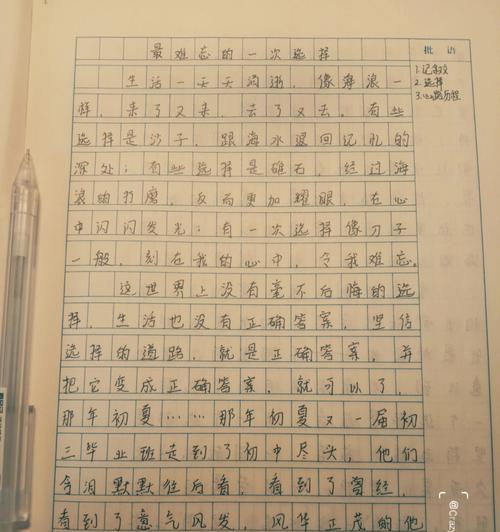 最难忘的一次选择
批语
1.记叙文
2.选择
3.心路历程
生活一天天消逝，像海浪一
样，来了又来，去了又去。有些
选择是沙子，跟海水退回记忆的
深处；有些选择是礁石，经过海
浪的打磨，反而更加耀眼，在心
中闪闪发光；有一次选择像刀子
一般，刻在我的心中，令我难忘。
这世界上没有毫不后悔的选
择，生活也没有正确答案，坚信
选择的道路，就是正确答案，并
把它变成正确答案，就可以了。
那年初夏……那年初夏又一届初
三毕业班走到了初中尽头，他们
含泪默默往后看，看到了曾经，
看到了意气风发，风华正茂的他